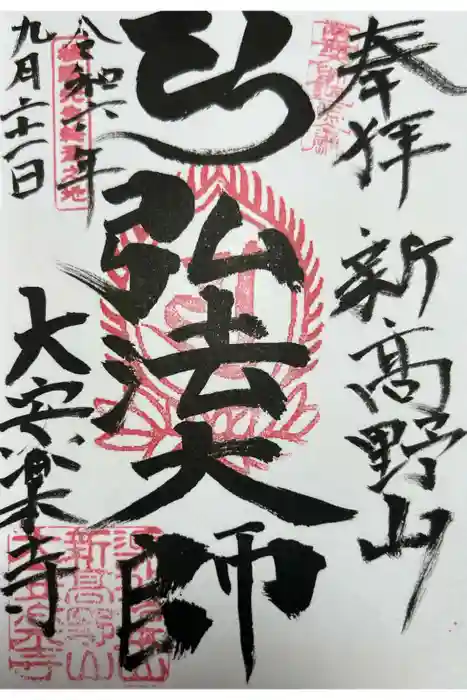 奉拝 新高野山
弘法大師
令和六年
九月二十一日
大安楽寺